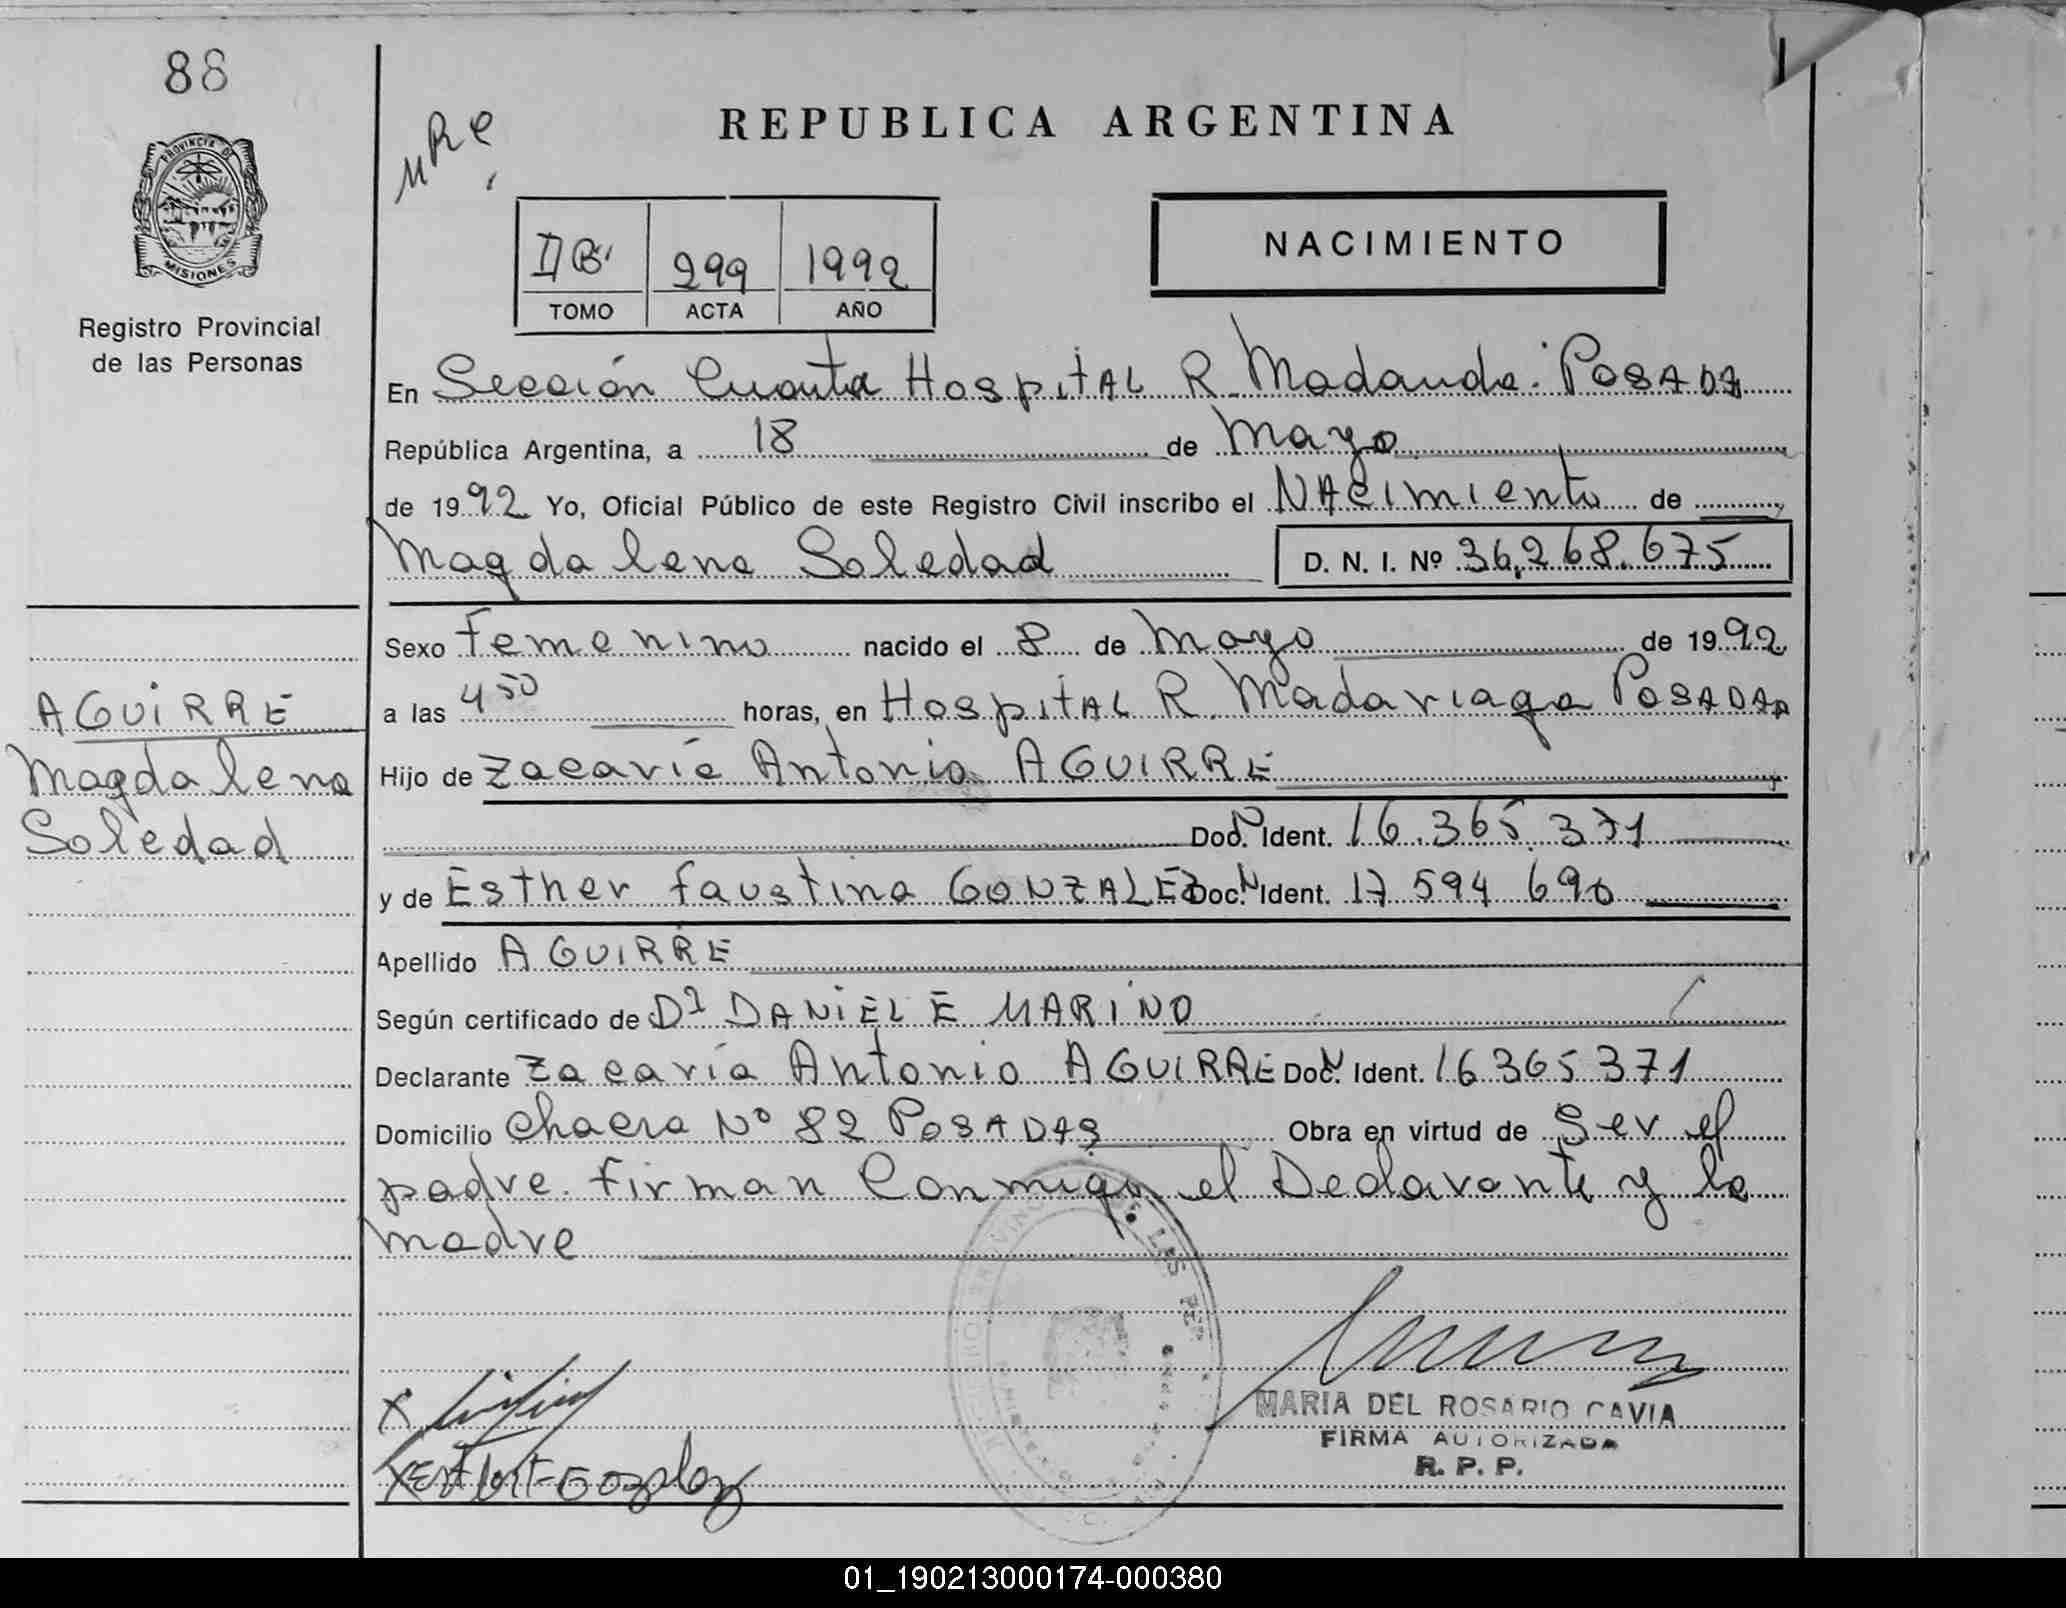 88
PROVINCIA DE
MISIONES
Registro Provincial
de las Personas
REPUBLICA ARGENTINA
299 1992
TOMO ACTA AÑO
NACIMIENTO
En Sección Cuarta Hospital R. POSADA
República Argentina, a 18 de Mayo
de 1992 Yo, Oficial Público de este Registro Civil inscribo el NAcimiento de
Magdalena Soledad D. N. I. Nº 36,268.675
Sexo Femenino nacido el 8 de Mayo de 1992
AGUIRRE
Magdalena
Soledad
a las 4 50 horas, en HospitAL R. Madariaga POSADAS
Hijo de Zacaría Antonio AGUIRRE
Doc. N Ident. 16.365.371
y de Esther Faustina GONZALEZ Doc. N Ident. 17 594 690
Apellido AGUIRRE
Según certificado de Dr DANIEL E MARINO
Declarante Zacaría Antonio AGUIRRE Doc. N Ident. 16 365 371
Domicilio Chacra Nº 82 POSADAS Obra en virtud de Ser el
padre. Firman Conmigo el Declarante y la
madre
MARIA DEL ROSARIO CAVIA
FIRMA AUTORIZADA
R. P. P.
01_190213000174-000380